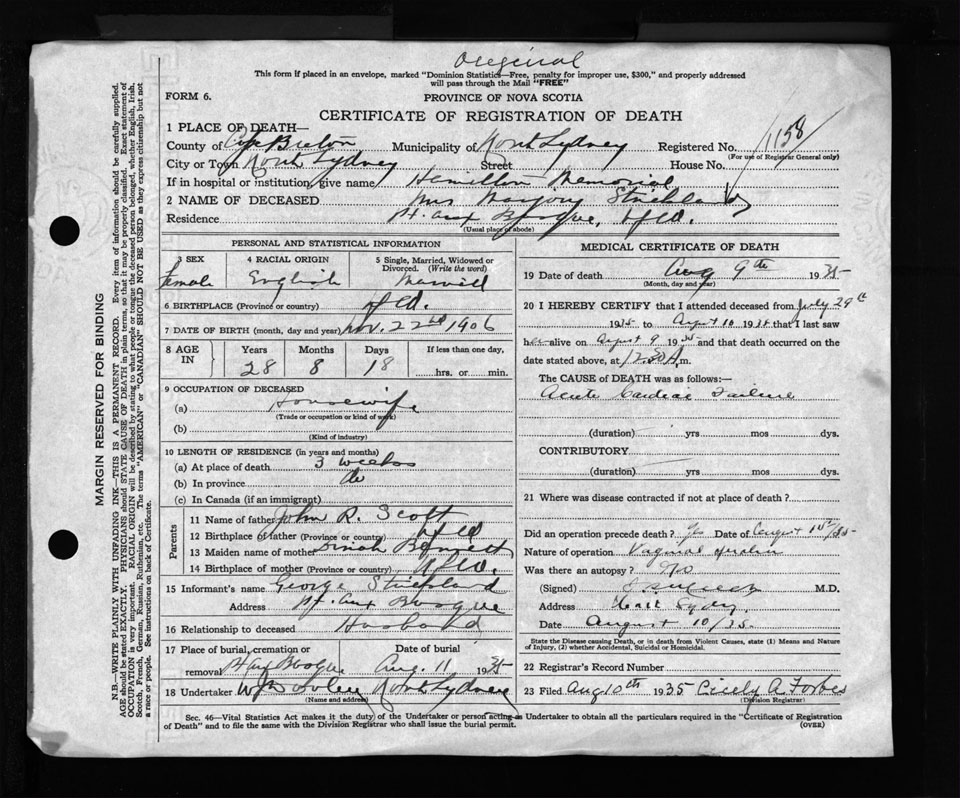 Original
This form if placed in an envelope, marked "Dominion Statistics—Free, penalty for improper use, $300," and properly addressed
will pass through the Mail "FREE"
FORM 6.
PROVINCE OF NOVA SCOTIA
CERTIFICATE OF REGISTRATION OF DEATH
1 PLACE OF DEATH—
County of Cape Breton Municipality of North Sydney Registered No. 1158
(For use of Registrar General only)
City or Town North Sydney Street House No.
If in hospital or institution, give name Hamilton Memorial
2 NAME OF DECEASED Mrs Marjory Strickland
Residence Pt. aux Basque, Nfld.
(Usual place of abode)
PERSONAL AND STATISTICAL INFORMATION
3 SEX Female
4 RACIAL ORIGIN English
5 Single, Married, Widowed or Divorced. (Write the word) Married
6 BIRTHPLACE (Province or country) Nfld.
7 DATE OF BIRTH (month, day and year) Nov. 22nd 1906
8 AGE IN Years Months Days If less than one day,
28 8 18 hrs. or min.
9 OCCUPATION OF DECEASED
(a) Housewife
(Trade or occupation or kind of work)
(b)
(Kind of industry)
10 LENGTH OF RESIDENCE (in years and months)
(a) At place of death 3 weeks
(b) In province do
(c) In Canada (if an immigrant)
Parents
11 Name of father John R. Scott
12 Birthplace of father (Province or country) Nfld
13 Maiden name of mother Dinah Bennett
14 Birthplace of mother (Province or country) Nfld.
15 Informant's name George Strickland
Address Pt. aux Basque
16 Relationship to deceased Husband
17 Place of burial, cremation or removal Pt aux Basque Date of burial Aug. 11 1935
18 Undertaker North Sydney
(Name and address)
MEDICAL CERTIFICATE OF DEATH
19 Date of death Aug 9th 1935
(Month, day and year)
20 I HEREBY CERTIFY that I attended deceased from July 29th
1935 to August 10 1935 that I last saw
her alive on August 9 1935 and that death occurred on the
date stated above, at m.
The CAUSE OF DEATH was as follows:—
Acute Cardiac Failure
(duration) yrs mos dys.
CONTRIBUTORY
(duration) yrs mos dys.
21 Where was disease contracted if not at place of death?
Did an operation precede death? Yes Date of August 1st/35
Nature of operation Vaginal
Was there an autopsy? No
(Signed) M.D.
Address North Sydney
Date August 10/35.
State the Disease causing Death, or in death from Violent Causes, state (1) Means and Nature
of Injury, (2) whether Accidental, Suicidal or Homicidal.
22 Registrar's Record Number
23 Filed Aug 10th 1935 Cicely A. Forbes
(Division Registrar)
Sec. 46—Vital Statistics Act makes it the duty of the Undertaker or person acting as Undertaker to obtain all the particulars required in the "Certificate of Registration
of Death" and to file the same with the Division Registrar who shall issue the burial permit. (OVER)
MARGIN RESERVED FOR BINDING
N.B.—WRITE PLAINLY WITH UNFADING INK—THIS IS A PERMANENT RECORD. Every item of information should be carefully supplied.
AGE should be stated EXACTLY. PHYSICIANS should STATE CAUSE OF DEATH in plain terms, so that it may be properly classified. Exact statement of
OCCUPATION is very important. RACIAL ORIGIN will be described by stating to what people or tongue the deceased person belonged, whether English, Irish,
Scotch, French, German, Russian, Ruthenian, etc. The terms "AMERICAN" or "CANADIAN" SHOULD NOT BE USED as they express citizenship but not
a race or people. See instructions on back of Certificate.